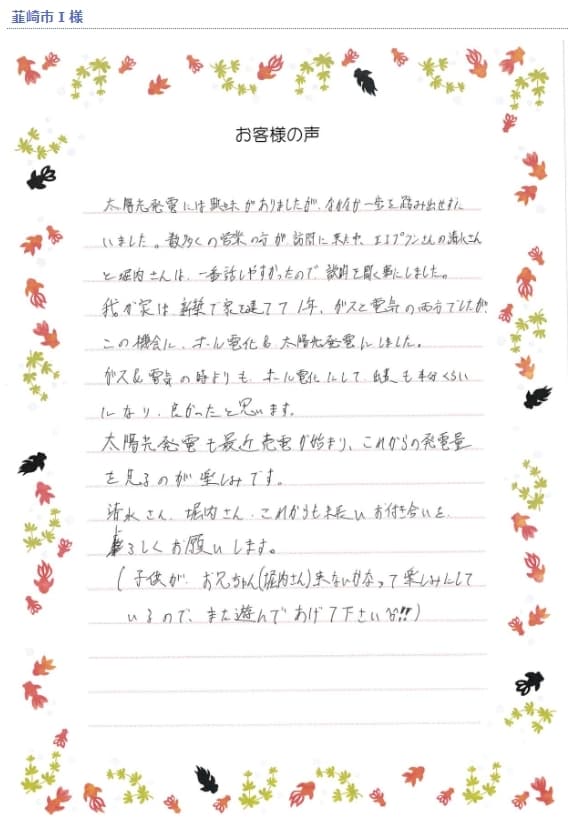 韮崎市I様
お客様の声
太陽光発電には興味がありましたが、なかなか一歩を踏み出せずに
いました。数多くの営業の方が訪問に来た中、エコプランさんの清水さん
と堀内さんは、一番話しやすかったので、説明を聞く事にしました。
我が家は新築で家を建てて1年、ガスと電気の両方でしたが、
この機会に、オール電化&太陽光発電にしました。
ガス&電気の時よりも、オール電化にして、出費も半分くらい
になり、良かったと思います。
太陽光発電も最近売電が始まり、これからの発電量
を見るのが楽しみです。
清水さん、堀内さん、これからも末長いお付き合いを、
よろしくお願いします。
(子供が、お兄ちゃん(堀内さん)来ないかなって楽しみにして
いるので、また遊んであげて下さいな!!)